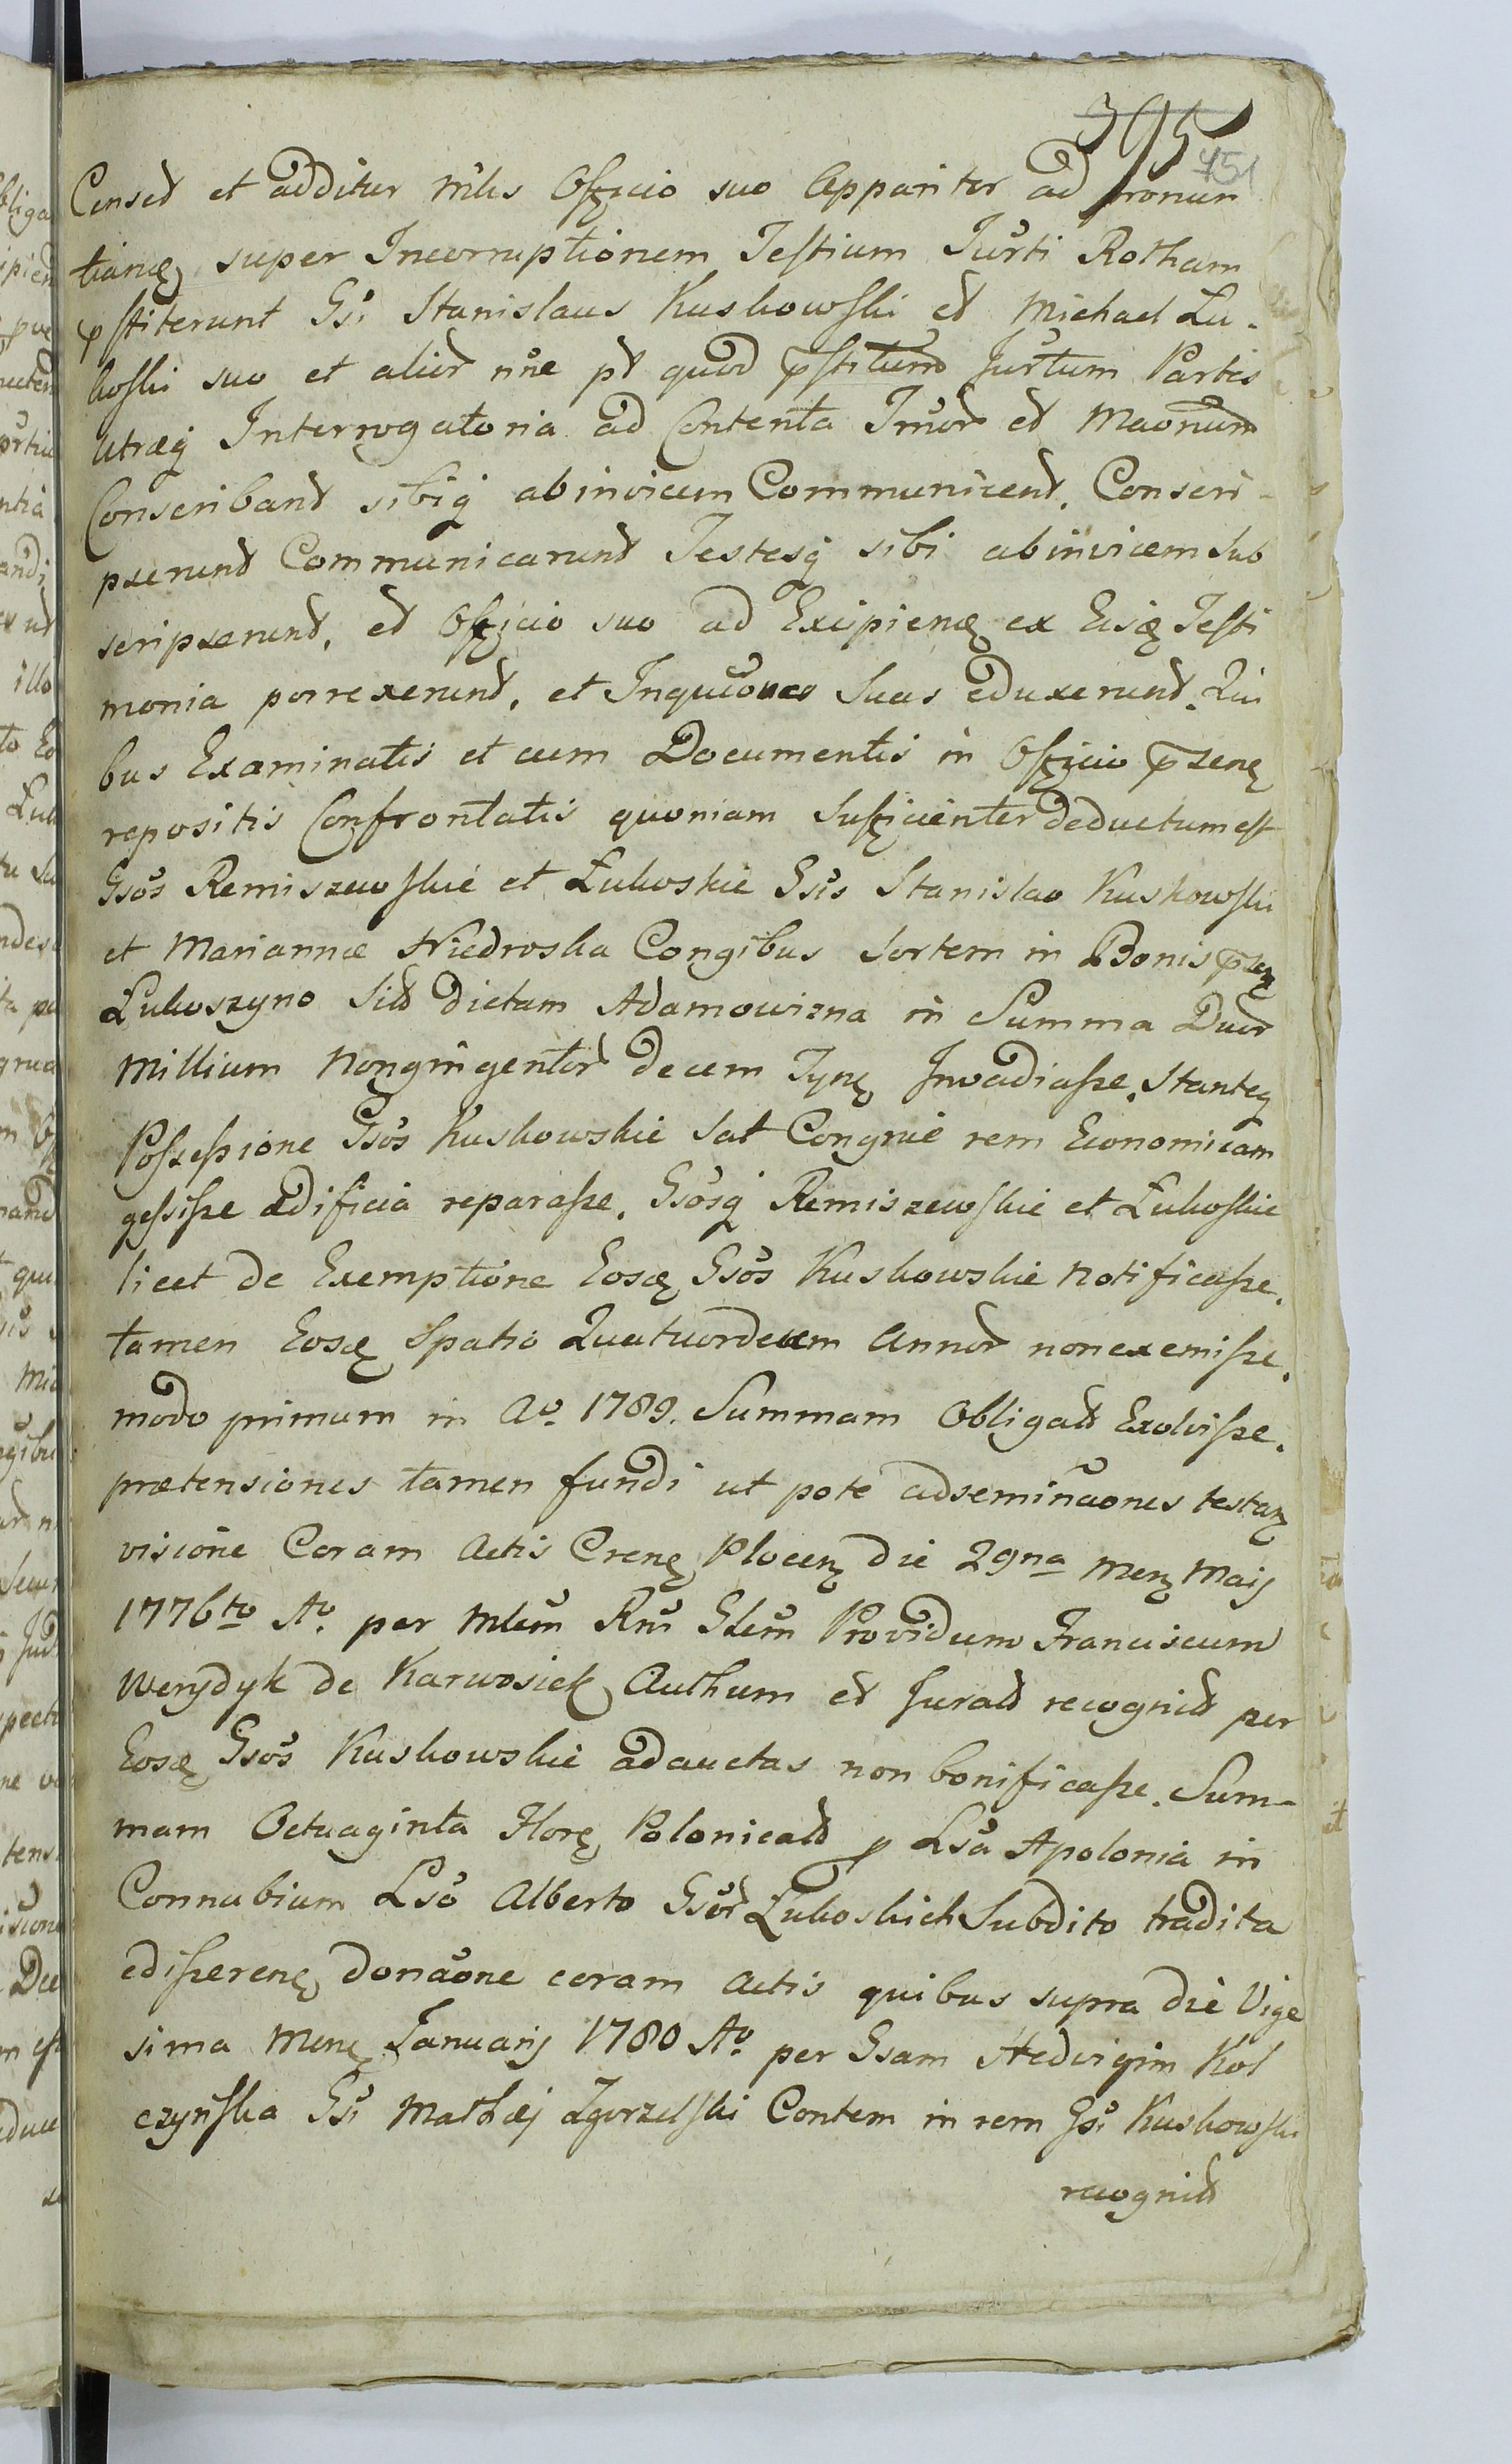 395
451
Censet et additur mlis Officio suo Apparitor ad pronun
tianę super Incorruptionem Testium Jurti Rotham
pstiterunt Gsi Stanislaus Kuskowski et Michael Łu-
koski suo et alior nne pt quod pstitum Jurtum Partes
Utræq Interrogatoria ad Contenta Imor et Maonum
Conscribant sibiq abinvicem Communicent. Conscri-
pserunt Communicarunt Testesq sibi abinvicem Sub
scripserunt, et Officio suo ad Excipienę ex Eisę Testi
monia porrexerunt, et Inquiones suas eduxerunt. Qui
bus Examinatis et cum Documentis in Officio pzenę
repositis Confrontatis quoniam Sufficienter deductum est
Gsos Remiszewskie et Łukoskie Gsis Stanislao Kuskowski
et Mariannæ Niedroska Congibus Sortem in Bonis pzę
Łukoszyno Sitt dictam Adamowizna in Summa Duor
Millium Nongingentor decem Tynę Invadiasse, Stanteq
Possessione Gsos Kuskowskie Sat Congrue rem Economicam
gessisse ædificia reparasse. Gsosq Remiszewskie et Łukoskie
licet de Exemptione Eosę Gsos Kuskowskie Notificasse,
tamen Eosę Spatio Quatuordecem Annor non exemisse.
modo primum in Ao 1789. Summam Obligatt Exolvisse.
prætensiones tamen fundi ut pote adseminaones testanę
visione Coram Actis Crenę Plocenę die 29na Menę Maij
1776to Ao per Mlem Rni Glem Providum Franciscum
Werydyk de Karwosiek Authum et Juratt recognitt per
Eosę Gsos Kuskowskie adauctas non bonificasse. Sum-
mam Octuaginta Florę Polonicatt p Lsa Apolonia in
Connubium Lso Alberto Gsor Łukoskich Subdito tradita
edisserenę donaone coram Actis quibus supra die Vige
sima Menę Januarij 1780 Ao per Gsam Hedvigim Kol
czyńska Gsi Mathæj Zgorzelski Contem in rem Gsi Kuskowski
recognitt